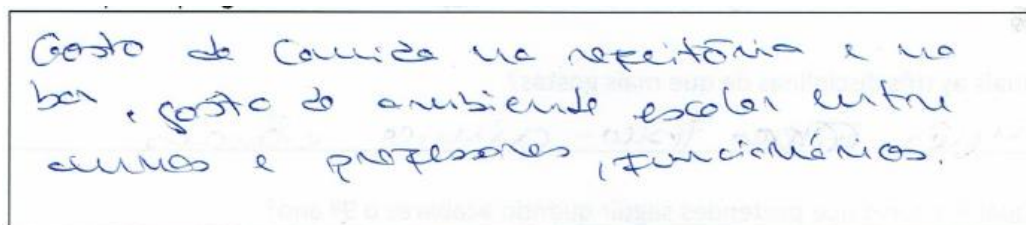 Gosto da Comida na refeitória e no
bar, gosto do ambiente escolar entre
alunos e professores, funcionários.